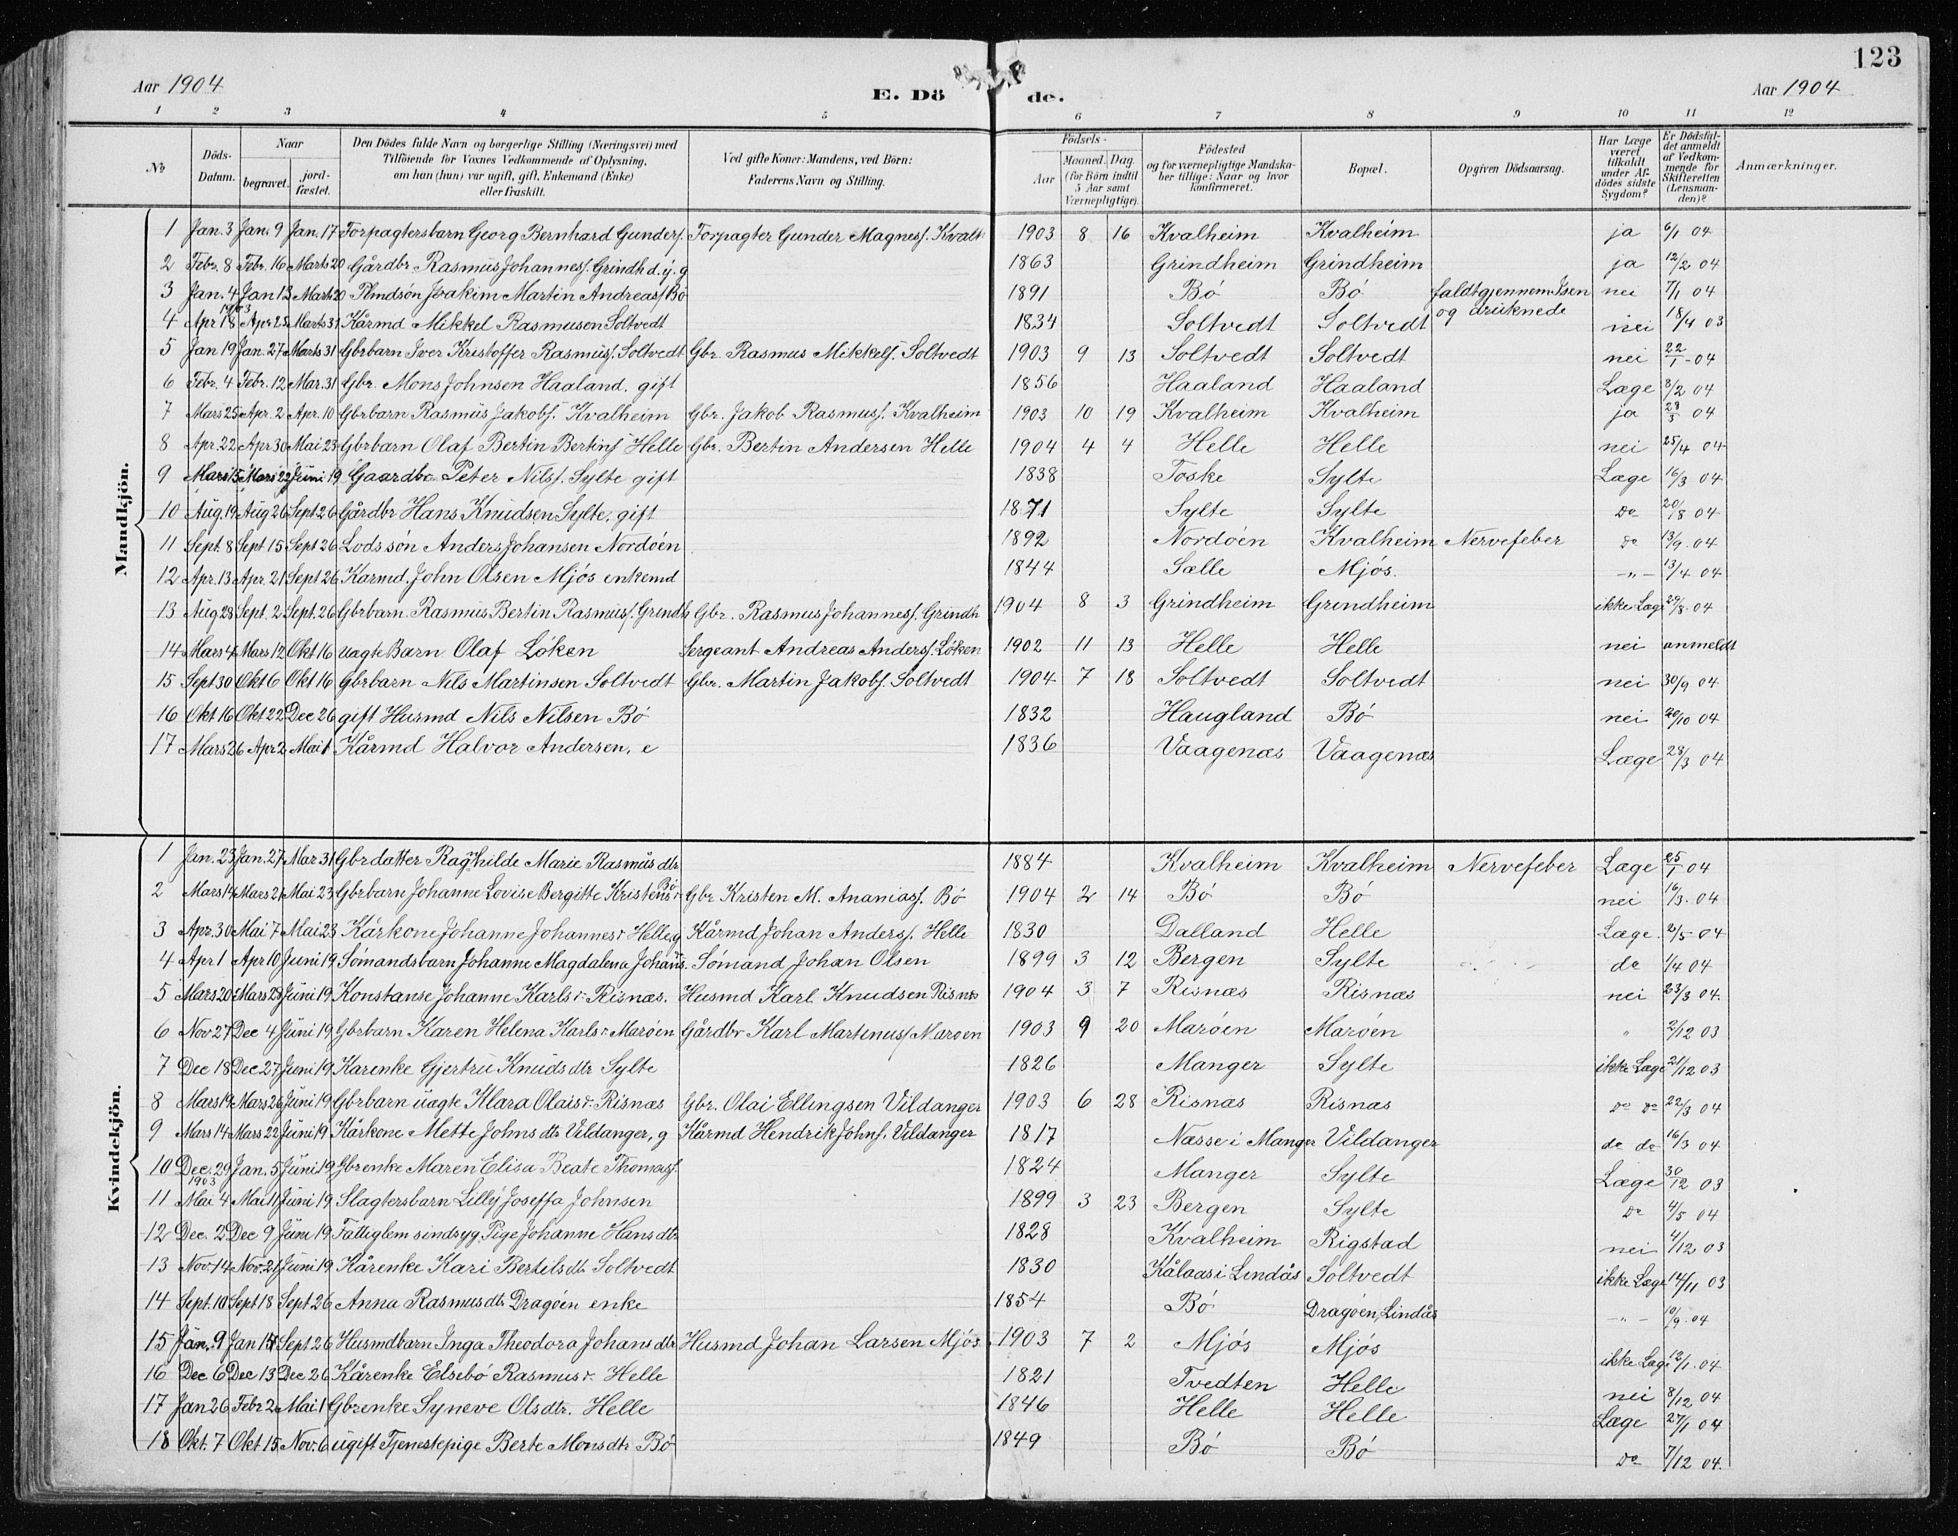 123
Aar 1904 E. Dö de. Aar 1904
1 2 3 4 5 6 7 8 9 10 11 12
No Döds-Datum. Naar begravet. jord-fæstet. Den Dödes fulde Navn og borgerlige Stilling (Næringsvei) med Tilföiende for Voxnes Vedkommende af Oplysning, om han (hun) var ugift, gift, Enkemand (Enke) eller fraskilt. Ved gifte Koner: Mandens, ved Börn: Faderens Navn og Stilling. Födsels- Aar Maaned. Dag. (for Börn indtil 5 Aar samt Værnepligtige). Födested og for værnepligtige Mandskaber tillige: Naar og hvor konfirmeret. Bopæl. Opgiven Dödsaarsag. Har Læge været tilkaldt under Afdödes sidste Sygdom? Er Dödsfaldet anmeldt af Vedkommende for Skifteretten (Lensmanden)? Anmærkninger.
Mandkjön.
1 Jan. 3 Jan. 9 Jan. 17 Forpagtersbarn Georg Bernhard Gunders. Forpagter Gunder Magness. Kvalh 1903 8 16 Kvalheim Kvalheim ja 6/1 04
2 Febr. 8 Febr. 16 Marts 20 Gårdbr Rasmus Johanness. Grindh d.y. g 1863 Grindheim Grindheim ja 12/2 04
3 Jan. 4 Jan 13 Mart. 20 Joakim Martin Andreass Bö 1891 Bö Bö faldt gjennem Isen og druknede nei 7/1 04
4 Apr 18 1903 Apr 25 Marts 31 Kårmd Mikkel Rasmusen Soltvedt 1834 Soltvedt Soltvedt nei 18/4 03
5 Jan 19 Jan. 27 Marts 31 Gbrbarn Iver Kristoffer Rasmuss. Soltvedt Gbr. Rasmus Mikkels. Soltvedt 1903 9 13 Soltvedt Soltvedt nei 22/1-04
6 Febr. 4 Febr. 12 Mar. 31 Gbr. Mons Johnsen Haaland. gift 1856 Haaland Haaland Læge 8/2 04
7 Mars 25 Apr. 2 Apr. 10 Gbrbarn Rasmus Jakobs. Kvalheim Gbr. Jakob Rasmuss. Kvalheim 1903 10 19 Kvalheim Kvalheim ja 28/3 04
8 Apr. 22 Apr 30 Mai 23 Gbrbarn Olaf Bertin Bertins Helle Gbr. Bertin Andersen Helle 1904 4 4 Helle Helle nei 25/4 04
9 Mars 15 Mars 22 Juni 19 Gaardbr Peter Nilss. Sylte gift 1838 Toske Sylte Læge 16/3 04
10 Aug. 19 Aug 26 Sept 26 Gårdbr Hans Knudsen Sylte. gift 1871 Sylte Sylte do 20/8 04
11 Sept. 8 Sept 15 Sept 26 Lodssön Anders Johansen Nordöen 1892 Nordöen Kvalheim Nervefeber do 13/9-04
12 Apr. 13 Apr. 21 Sept 26 Kårmd. John Olsen Mjös enkemd 1844 Sælle Mjös. -"- 13/4 04
13 Aug 28 Sept. 2 Sept. 26 Gbrbarn. Rasmus Bertin Rasmuss. Grindh Gbr. Rasmus Johanness. Grindh 1904 8 3 Grindheim Grindheim ikke Læge 29/8.04
14 Mars 4 Mars 12 Okt 16 uagte Barn Olaf Löken Sergeant Andreas Anders. Löken 1902 11 13 Helle Helle nei anmeldt
15 Sept 30 Okt 6 Okt 16 Gbrbarn Nils Martinsen Soltvedt Gbr. Martin Jakobs. Soltvedt 1904 7 18 Soltvedt Soltvedt nei 30/9 04
16 Okt 16 Okt 22 Dec 26 gift Husmd Nils Nilsen Bö 1832 Haugland Bö nei 20/10 04
17 Mars 26 Apr 2 Mai 1 Kårmd Halvor Andersen, e 1836 Vaagenæs Vaagenæs Læge 28/3 04
Kvindekjön.
1 Jan. 23 Jan. 27 Mar 31 Gbrdatter Ragnhilde Marie Rasmus dtr 1884 Kvalheim Kvalheim Nervefeber Læge 25/1 04
2 Mars 14 Mars 24 Mai 23 Gbrbarn Johanne Lovise Bergitte Kristens Bö Gbr Kristen M. Ananiass. Bö 1904 2 14 Bö Bö nei 16/3. 04
3 Apr. 30 Mai 7 Mai 23 Kårkone Johanne Johannesdr Helle g Kårmd Johan Anderss. Helle 1830 Dalland Helle Læge. 2/5-04
4 Apr 1 Apr 10 Juni 19 Sömandsbarn Johanne Magdalena Johans. Sömand Johan Olsen 1899 3 12 Bergen Sylte do 1/4 04
5 Mars 20 Mars 28 Juni 19 Konstanse Johanne Karls dr. Risnæs. Husmd Karl Knudsen Risnæs 1904 3 7 Risnæs Risnæs nei 23/3 04.
6 Nov 27 Dec 4 Juni 19 Gbrbarn Karen Helena Karlsdr Maröen Gårdbr Karl Martinuss Maröen 1903 9 20 Maröen Maröen " 2/12 03
7 Dec 18 Dec 27 Juni 19 Kårenke Gjertru Knuds dtr Sylte 1826 Manger Sylte ikke Læge 21/12 03
8 Mars 19 Mars 26 Juni 19 Gbrbarn uagte Klara Olaisdr. Risnæs Gbr. Olai Ellingsen Vildanger 1903 6 28 Risnæs Risnæs do do 22/3 04
9 Mars 14 Mars 22 Juni 19 Kårkone Mette Johns dtr Vildanger, g Kårmd Hendrik Johns. Vildanger 1817 Næsse i Manger Vildanger do do 16/3 04
10 Dec. 29 1903 Jan. 5 Juni 19 Gbrenke Maren Elisa Beate Thomass. 1824 Manger Sylte Læge 30/12 03
11 Mai 4 Mai 11 Juni 19 Slagtersbarn Lilly Joseffa Johnsen 1899 3 23 Bergen Sylte do 4/5 04
12 Dec. 2 Dec 9 Juni 19 Fattiglem sindsyg Pige Johanne Hans dtr 1828 Kvalheim Rigstad nei 4/12 03
13 Nov. 14 Nov. 21 Juni 19 Kårenke Kari Bertels dtr Soltvedt 1830 Kålaas i Lindås Soltvedt ikke Læge 14/11 03
14 Sept. 10 Sept 18 Sept. 26 Anna Rasmus dtr Dragöen enke 1854 Bö Dragöen, Lindås -"- 10/9.04
15 Jan. 9 Jan 15 Sept 26 Husmdbarn Inga Theodora Johans dtr Husmd Johan Larsen Mjös 1903 7 2 Mjös Mjös ikke Læge 12/1.04
16 Dec 6 Dec 13 Dec 26 Kårenke Elsebö Rasmus dr. Helle 1821 Tvedten Helle nei 8/12 04
17 Jan 26 Febr 2 Mai 1 Gbrenke Syneve Ols dtr. Helle 1846 Helle Helle Læge 27/1 04
18 Okt. 7 Okt 15 Nov. 6 ugift Tjenestepige Berte Mons dtr Bö 1849 Bö Bö do 7/12 04.